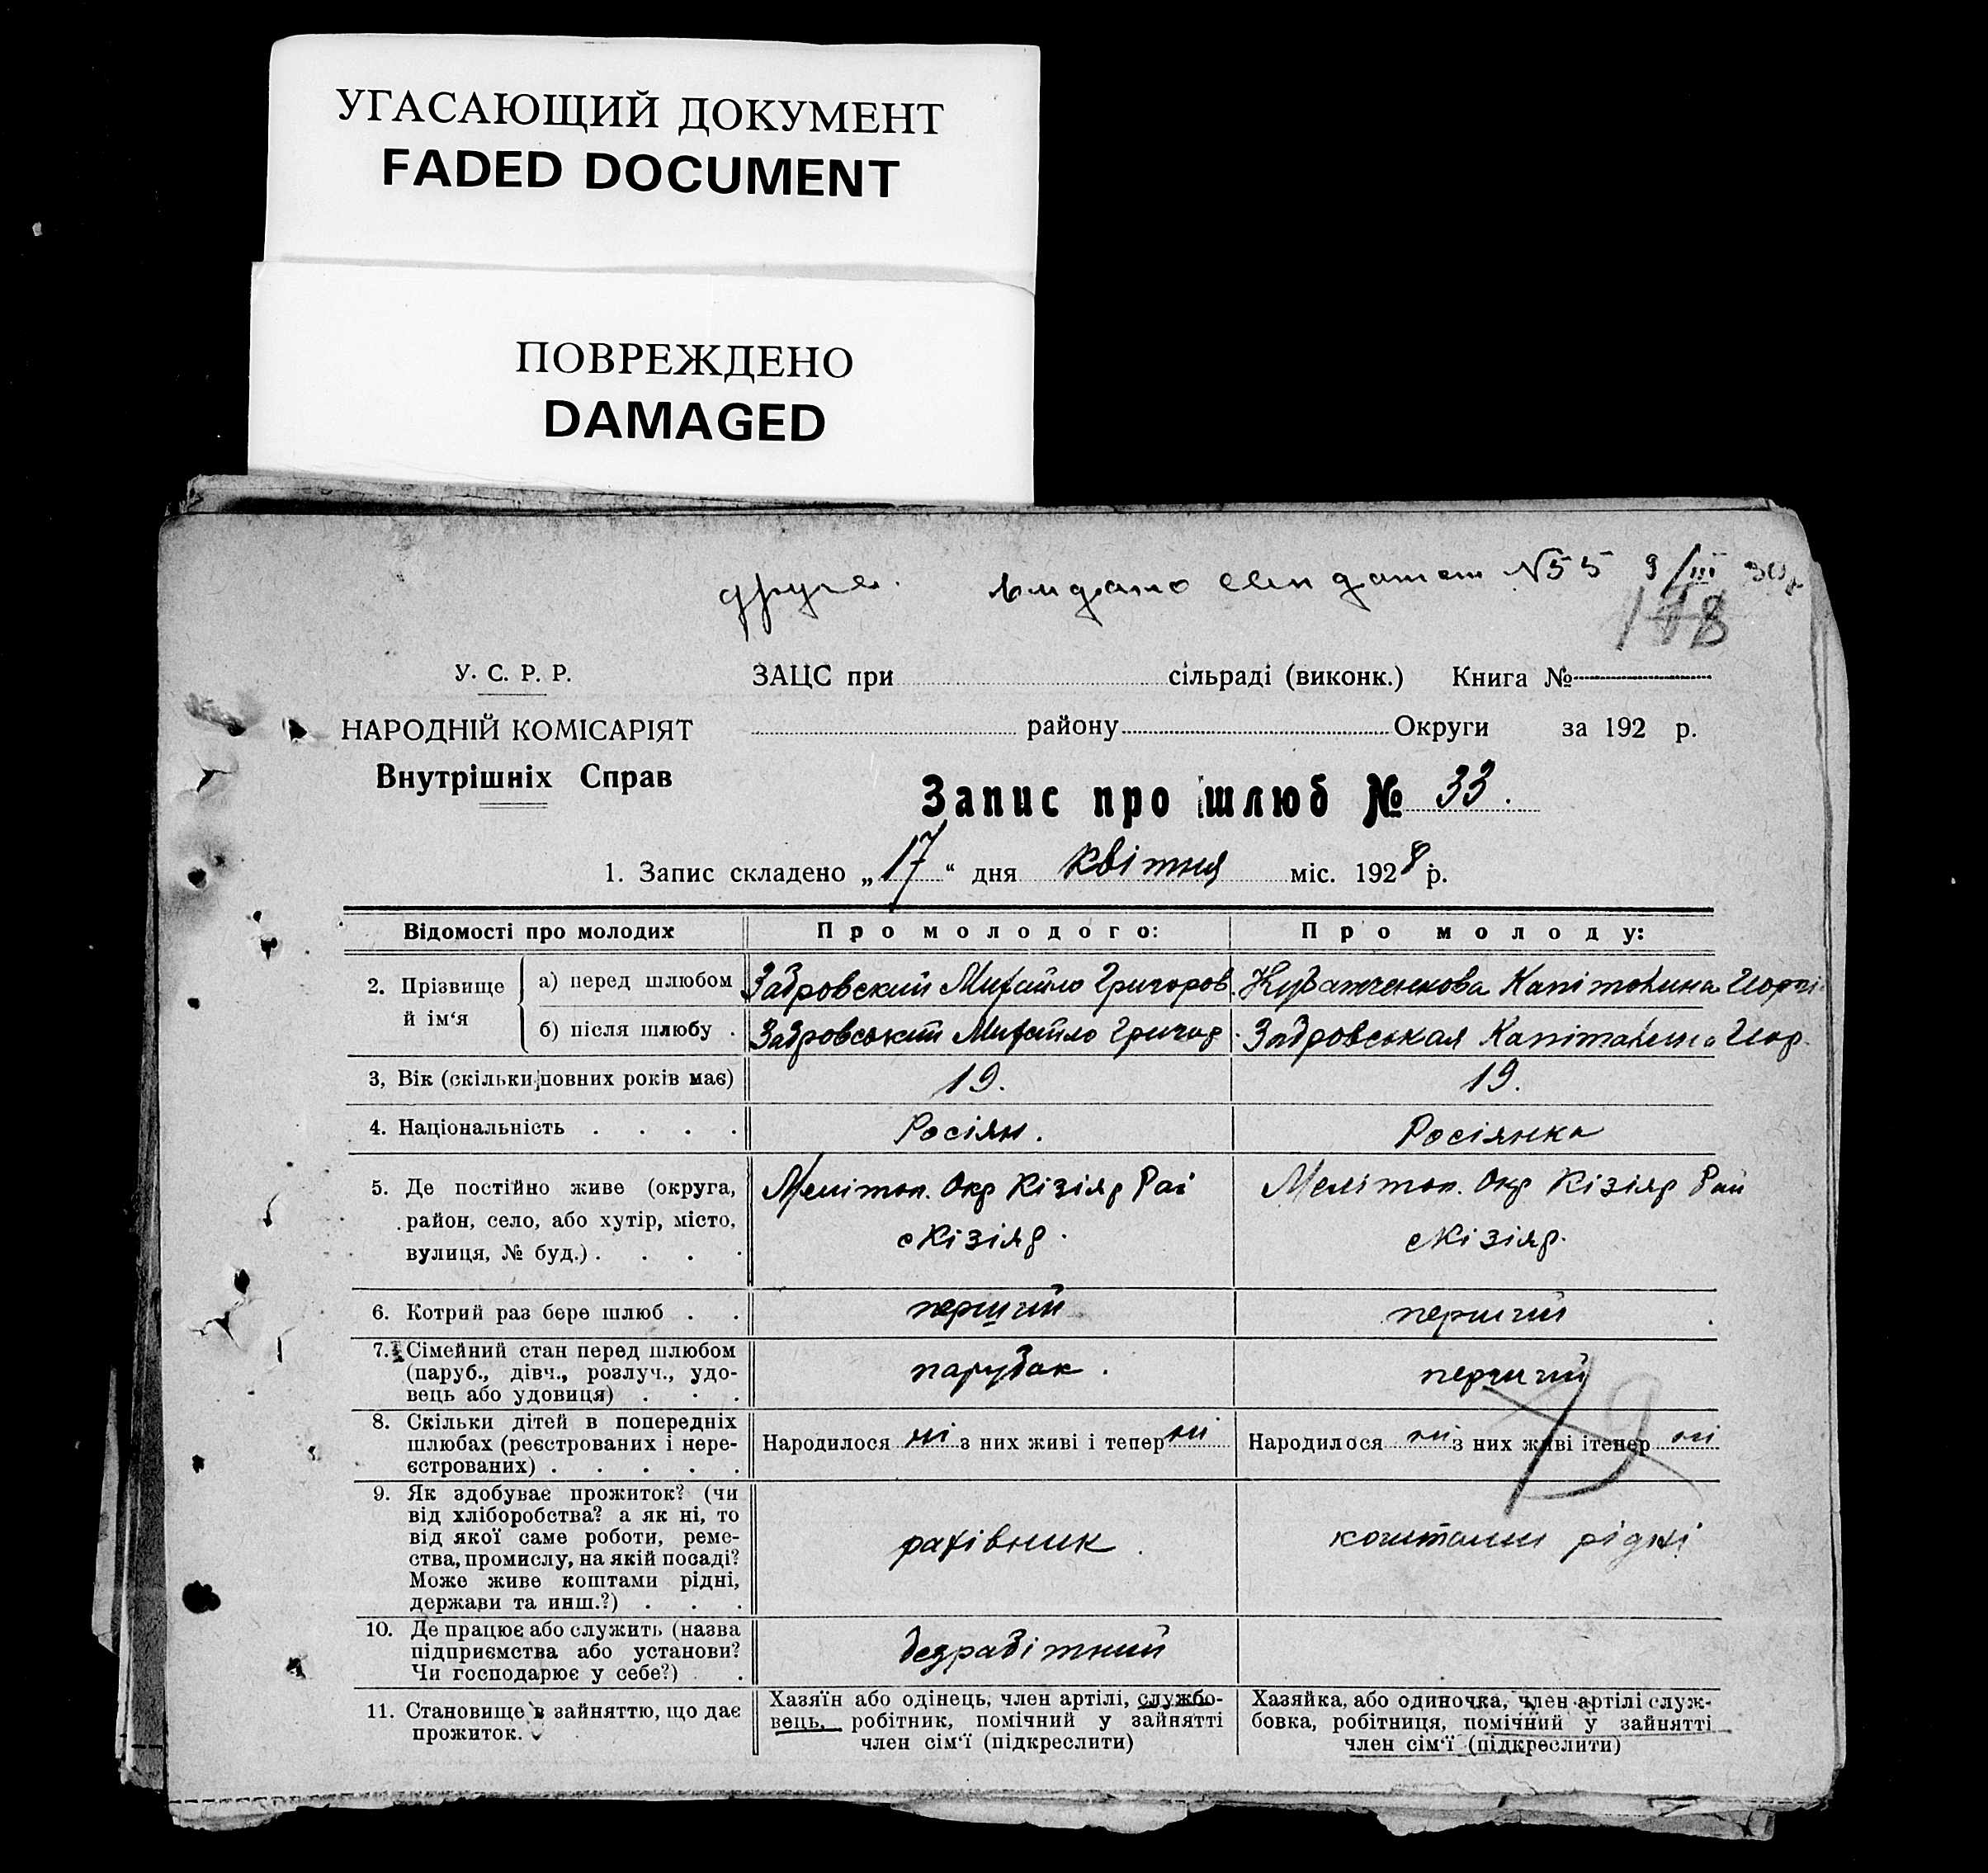 УГАСАЮЩИЙ ДОКУМЕНТ
FADED DOCUMENT
ПОВРЕЖДЕНО
DAMAGED
друге. видано №55 9/III 30 р
У. С. Р. Р.
ЗАЦС при сільраді (виконк.) Книга №
НАРОДНІЙ КОМІСАРІЯТ
району Округи за 192 р.
Внутрішніх Справ
Запис про шлюб № 33.
1. Запис складено „17“ дня квітня міс. 1928 р.
Відомості про молодих
Про молодого:
Про молоду:
2. Прізвище й ім‘я
а) перед шлюбом
Задровский Михайло Григоров.
Капітолина Георгі
б) після шлюбу .
Задровський Михайло Григор.
Задровськая Капітолина Геор.
3, Вік (скільки повних років має)
19.
19.
4. Національність . . . .
Росіян.
Росіянка
5. Де постійно живе (округа,
район, село, або хутір, місто,
вулиця, № буд.) . . . .
Мелітоп. Окр Кізіяр Рай
с Кізіяр.
Мелітоп. Окр Кізіяр Рай
с Кізіяр.
6. Котрий раз бере шлюб . .
перший
перший
7. Сімейний стан перед шлюбом
(паруб., дівч., розлуч., удо-
вець або удовиця) . . .
парубак.
перший
8. Скільки дітей в попередніх
шлюбах (реєстрованих і нере-
єстрованих) . . . . .
Народилося ні з них живі і тепер ні
Народилося ні з них живі ітепер ні
9. Як здобуває прожиток? (чи
від хліборобства? а як ні, то
від якої саме роботи, реме-
ства, промислу, на якій посаді?
Може живе коштами рідні,
держави та инш.?) . . .
рахівник
коштами рідні
10. Де працює або служить (назва
підприємства або установи?
Чи господарює у себе?) .
безрабітний
11. Становище в зайняттю, що дає
прожиток.
Хазяїн або одінець, член артілі, службо-
вець, робітник, помічний у зайнятті
член сім‘ї (підкреслити)
Хазяйка, або одиночка, член артілі служ-
бовка, робітниця, помічний у зайнятті
член сім‘ї (підкреслити)